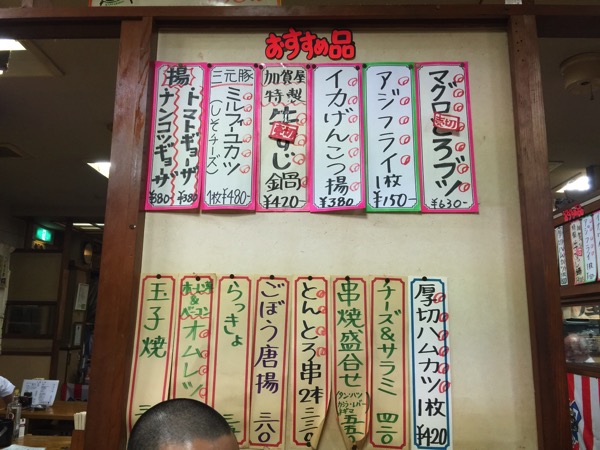 おすすめ品
マグロ
ブツ
売切
¥630-
アジフライ
1枚
¥150-
イカげんこつ揚
¥380
加賀屋
特製
牛すじ鍋
売切
¥420-
三元豚
ミルフィーユカツ
(しそチーズ)
1枚¥480-
揚・トマトギョーザ
¥380
ナンコツギョーザ
¥380
厚切ハムカツ
1枚
¥420
チーズ&サラミ
四二〇
串焼盛合せ
五五〇
とんとろ串
2本
三三〇
ごぼう唐揚
三二〇
らっきょ
オムレツ
玉子焼